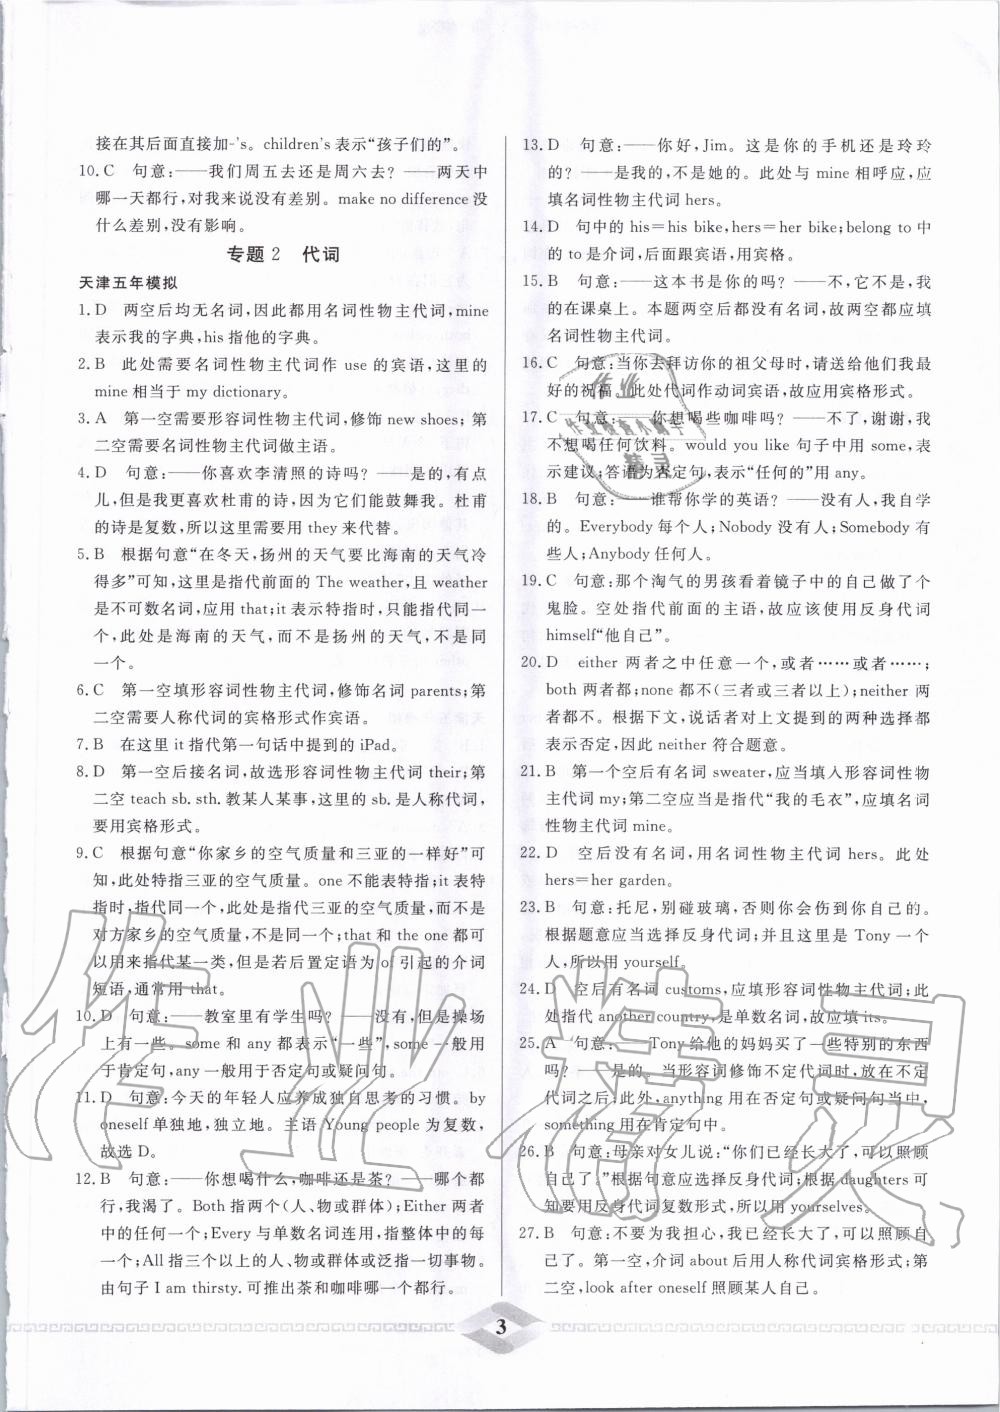 接在其后面直接加-'s。children's 表示“孩子们的”。
10. C 句意:——我们周五去还是周六去? ——两天中
哪一天都行,对我来说没有差别。make no difference 没
什么差别,没有影响。
专题 2 代词
天津五年模拟
1. D 两空后均无名词,因此都用名词性物主代词,mine
表示我的字典,his 指他的字典。
2. B 此处需要名词性物主代词作 use 的宾语,这里的
mine 相当于 my dictionary。
3. A 第一空需要形容词性物主代词,修饰 new shoes;第
二空需要名词性物主代词做主语。
4. D 句意:——你喜欢李清照的诗吗? ——是的,有点
儿,但是我更喜欢杜甫的诗,因为它们能鼓舞我。杜甫
的诗是复数,所以这里需用 they 来代替。
5. B 根据句意“在冬天,扬州的天气要比海南的天气冷
得多”可知,这里是指代前面的 The weather,且 weather
是不可数名词,应用 that;it 表示特指时,只能指代同一
个,此处是海南的天气,而不是扬州的天气,不是同
一个。
6. C 第一空填形容词性物主代词,修饰名词 parents;第
二空需要人称代词的宾格形式作宾语。
7. B 在这里 it 指代第一句话中提到的 iPad。
8. D 第一空后接名词,故选形容词性物主代词 their;第
二空 teach sb. sth. 教某人某事,这里的 sb. 是人称代词,
要用宾格形式。
9. C 根据句意“你家乡的空气质量和三亚的一样好”可
知,此处特指三亚的空气质量。one 不能表特指;it 表特
指时,指代同一个,此处是指代三亚的空气质量,而不是
对方家乡的空气质量,不是同一个;that 和 the one 都可
以用来指代某一类,但是若后置定语为 of 引起的介词
短语,通常用 that。
10. D 句意:——教室里有学生吗? ——没有,但是操场
上有一些。some 和 any 都表示“一些”,some 一般用
于肯定句,any 一般用于否定句或疑问句。
11. D 句意:今天的年轻人应养成独自思考的习惯。by
oneself 单独地,独立地。主语 Young people 为复数,
故选 D。
12. B 句意:——你想喝什么,咖啡还是茶? ——哪个都
行,我渴了。Both 指两个(人、物或群体);Either 两者
中的任何一个;Every 与单数名词连用,指整体中的每
一个;All 指三个以上的人、物或群体或泛指一切事物。
由句子 I am thirsty. 可推出茶和咖啡哪一个都行。
13. D 句意:——你好,Jim。这是你的手机还是玲玲
的? ——是我的,不是她的。此处与 mine 相呼应,应
填名词性物主代词 hers。
14. D 句中的 his=his bike,hers=her bike;belong to 中
的 to 是介词,后面跟宾语,用宾格。
15. B 句意:——这本书是你的吗? ——不,它不是,我
的在课桌上。本题两空后都没有名词,故两空都应填
名词性物主代词。
16. C 句意:当你去拜访你的祖父母时,请送给他们我最
好的祝福。此处代词作动词宾语,故应用宾格形式。
17. C 句意:——你想喝些咖啡吗? ——不了,谢谢,我
不想喝任何饮料。would you like 句子中用 some,表
示建议;答语为否定句,表示“任何的”用 any。
18. B 句意:——谁帮你学的英语? ——没有人,我自学
的。Everybody 每个人;Nobody 没有人;Somebody 有
些人;Anybody 任何人。
19. C 句意:那个淘气的男孩看着镜子中的自己做了个
鬼脸。空处指代前面的主语,故应该使用反身代词
himself“他自己”。
20. D either 两者之中任意一个,或者……或者……;
both 两者都;none 都不(三者或三者以上);neither 两
者都不。根据下文,说话者对上文提到的两种选择都
表示否定,因此 neither 符合题意。
21. B 第一个空后有名词 sweater,应当填入形容词性物
主代词 my;第二空应当是指代“我的毛衣”,应填名词
性物主代词 mine。
22. D 空后没有名词,用名词性物主代词 hers。此处
hers=her garden。
23. B 句意:托尼,别碰玻璃,否则你会伤到你自己的。
根据题意应当选择反身代词;并且这里是 Tony 一个
人,所以用 yourself。
24. D 空后有名词 customs,应填形容词性物主代词;此
处指代 another country,是单数名词,故应填 its。
25. A 句意:——Tony 给他的妈妈买了一些特别的东西
吗? ——是的。当形容词修饰不定代词时,放在不定
代词之后;此外,anything 用在否定句或疑问句当中,
something 用在肯定句中。
26. B 句意:母亲对女儿说:“你们已经长大了,可以照顾自
己了。”根据句意应选择反身代词;根据 daughters 可
知要用反身代词复数形式,所以用 yourselves。
27. D 句意:不要为我担心,我已经长大了,可以照顾自
己了。第一空,介词 about 后用人称代词宾格形式;第
二空,look after oneself 照顾某人自己。
3
作业精灵